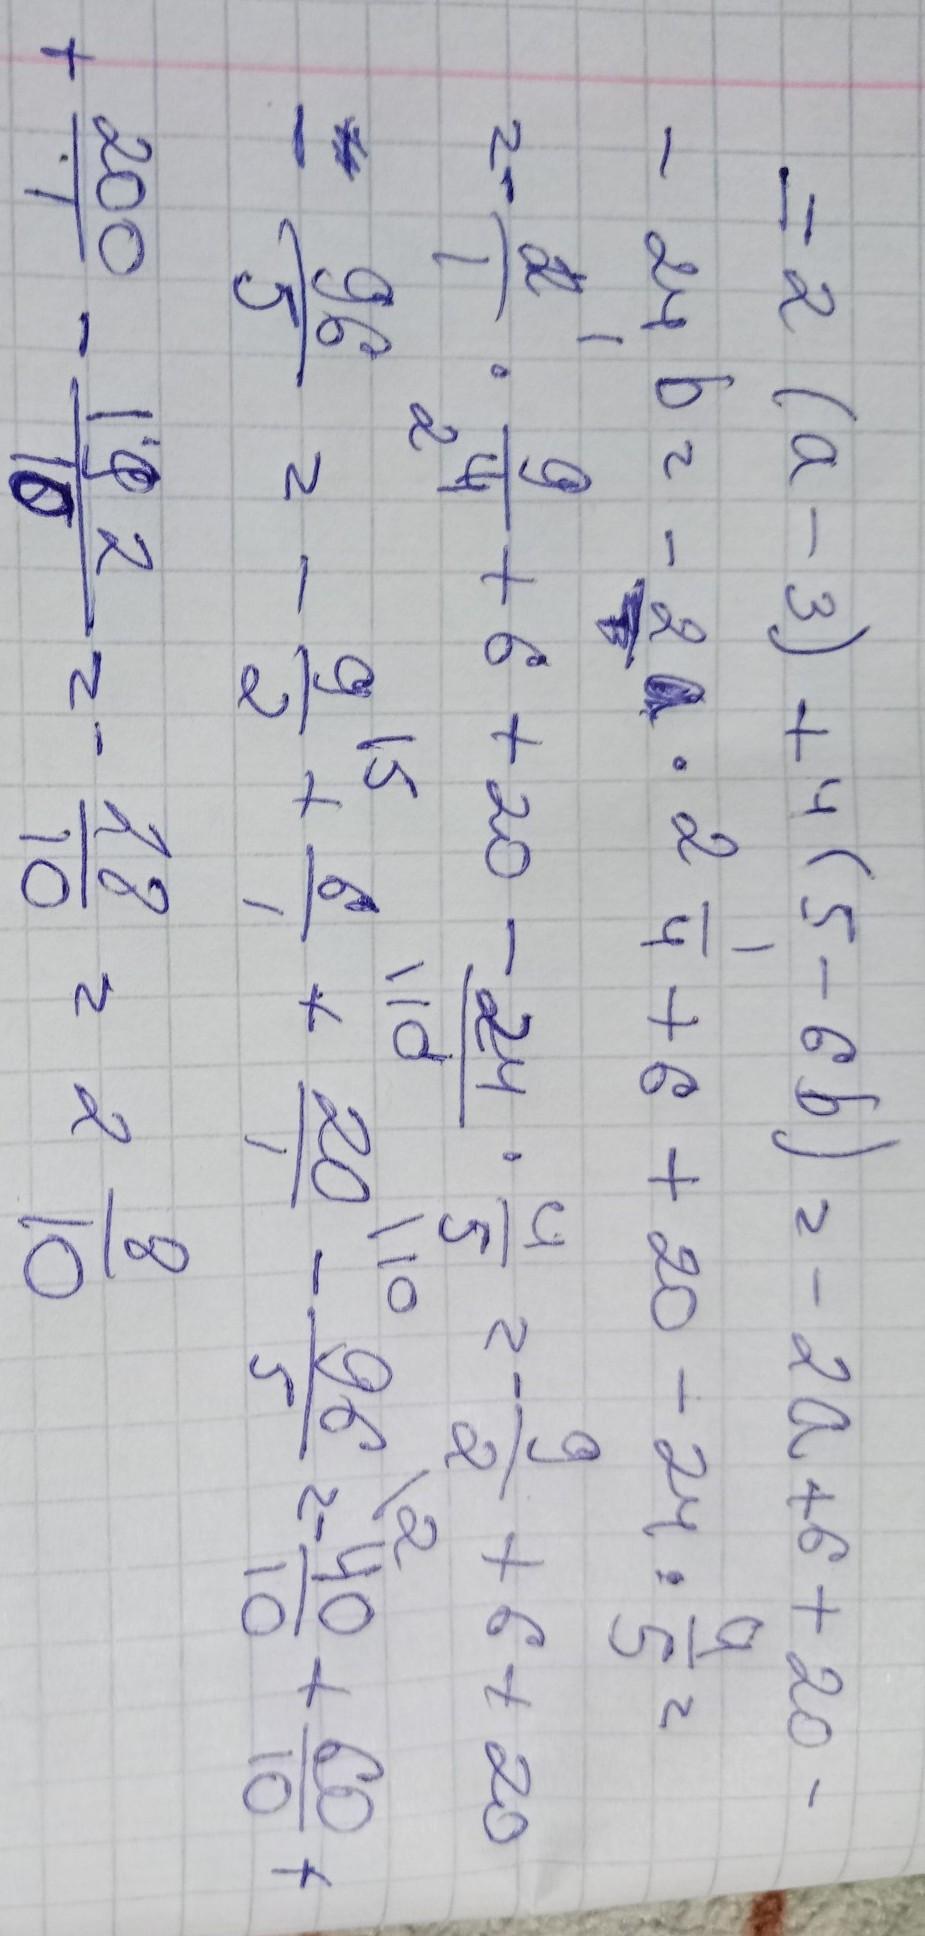 -2(a-3)+4(5-6b)=-2a+6+20-
-24b=-2·2 1/4+6+20-24·4/5=
=-2/1·9/4+6+20-24·4/5=-9/2+6+20
-96/5=-9/2+6/1+20/1-96/5=-40/10+60/10+
+200/1-192/10=-28/10=2 8/10